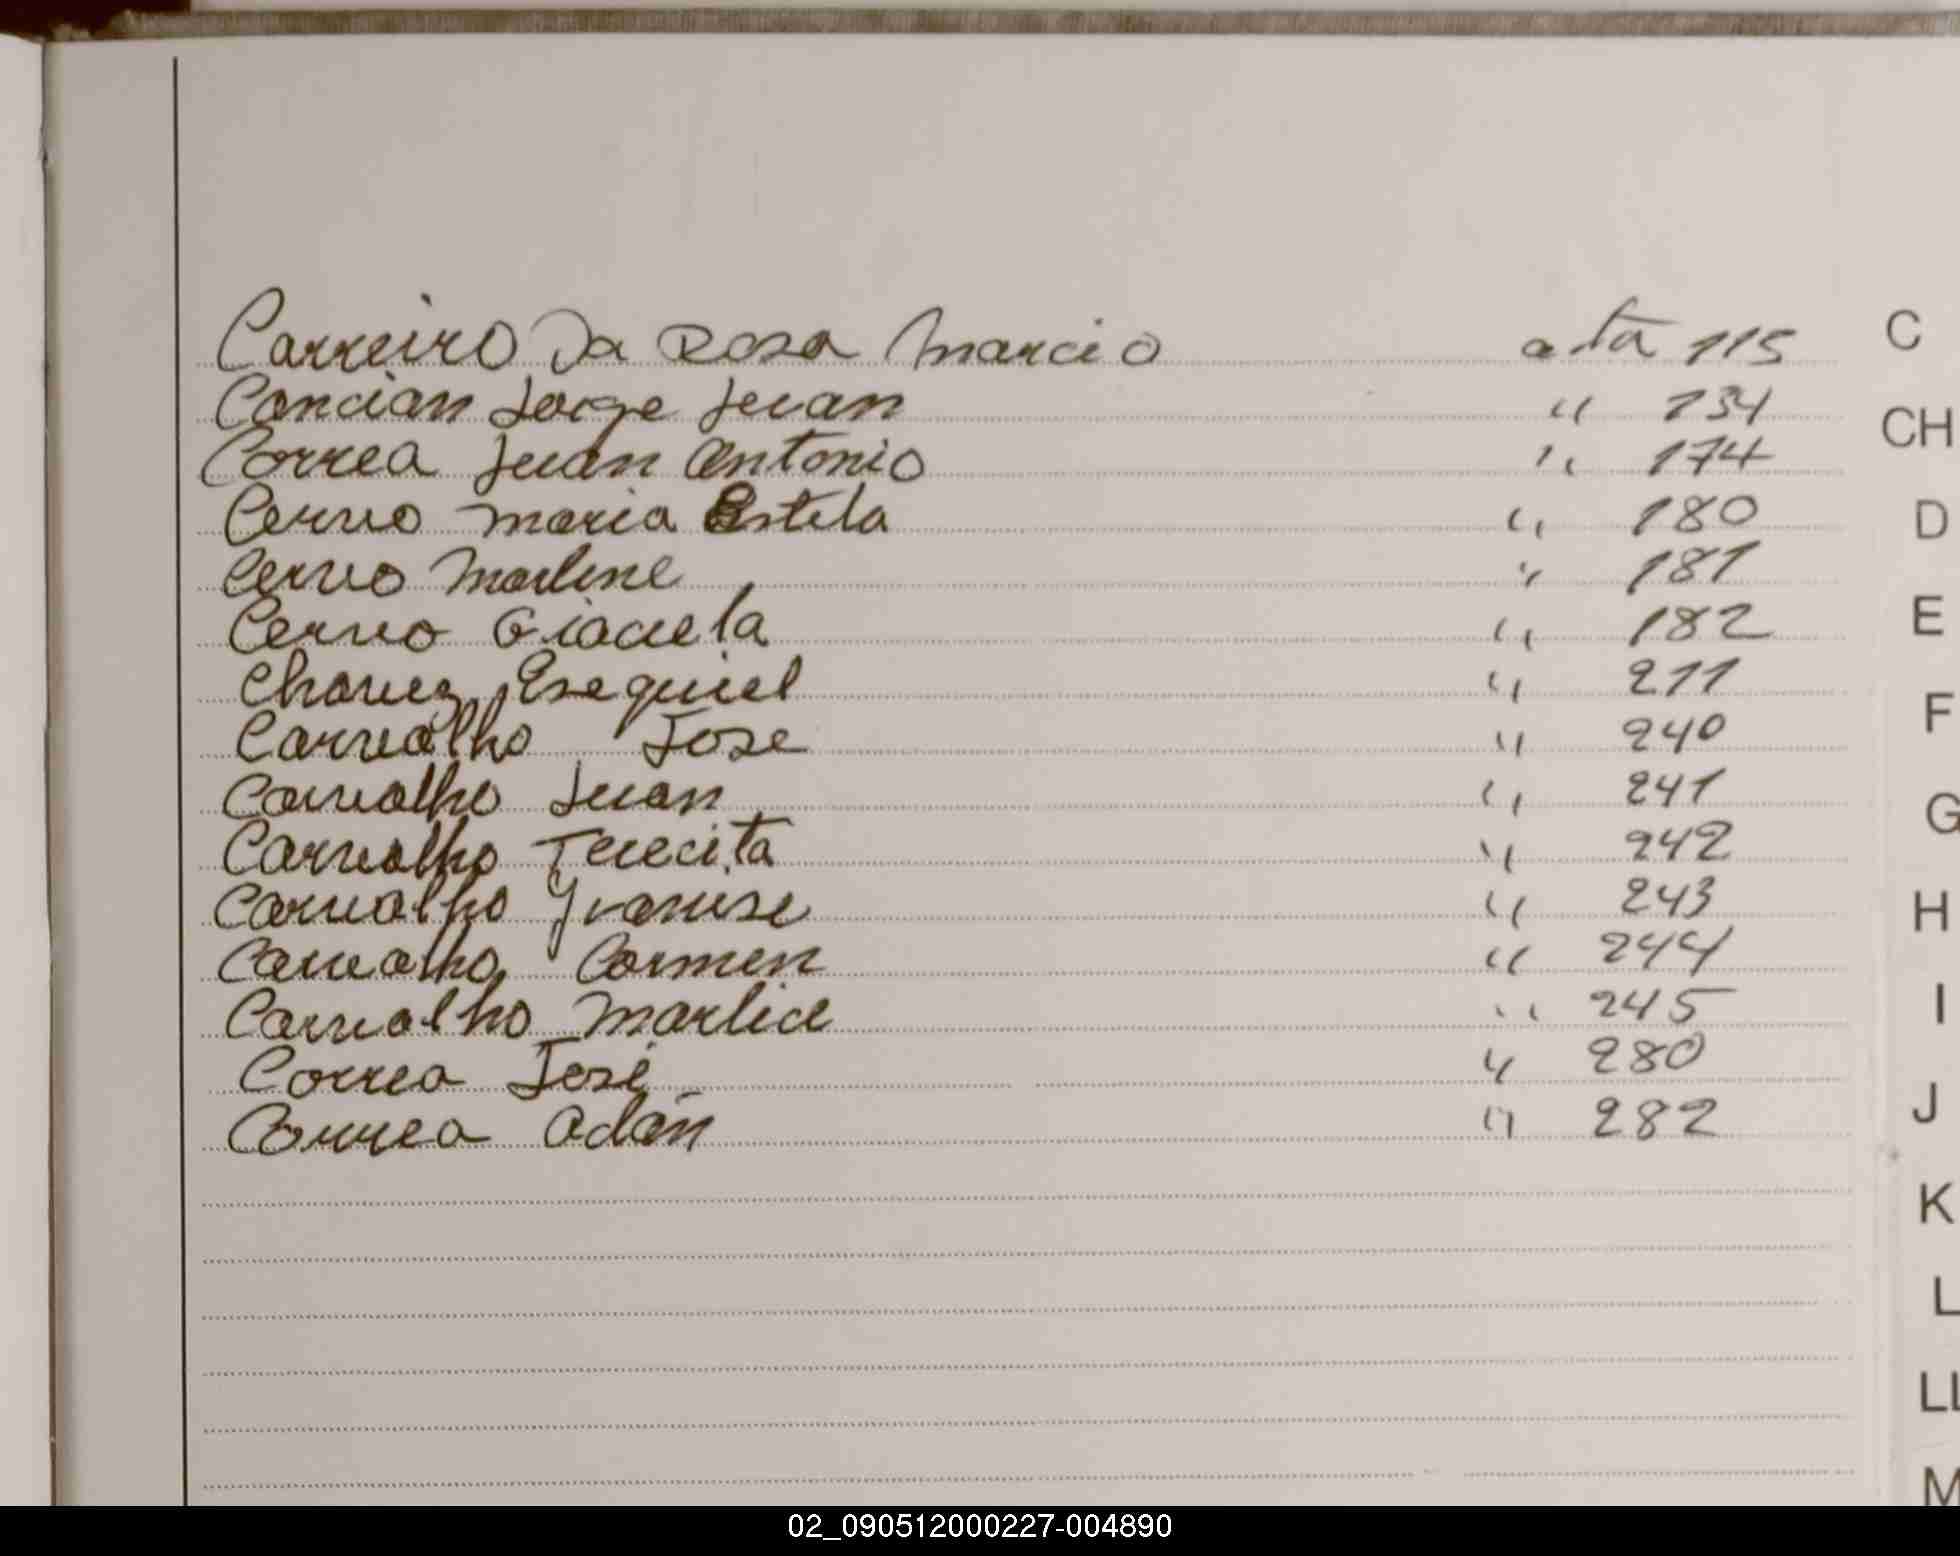 Carreiro Da Rosa Marcio ata 115
Concian Jorge Juan " 134
Correa Juan Antonio " 174
Cervo Maria Estela " 180
Cervo Marlene " 181
Cervo Graciela " 182
Chavez Esequiel " 211
Carvalho Jose " 240
Carvalho Juan " 241
Carvalho Terecita " 242
Carvalho Yvanise " 243
Carvalho Carmen " 244
Carvalho Marlice " 245
Correa José " 280
Correa Adán " 282
C
CH
D
E
F
G
H
I
J
K
L
LL
M
02_090512000227-004890